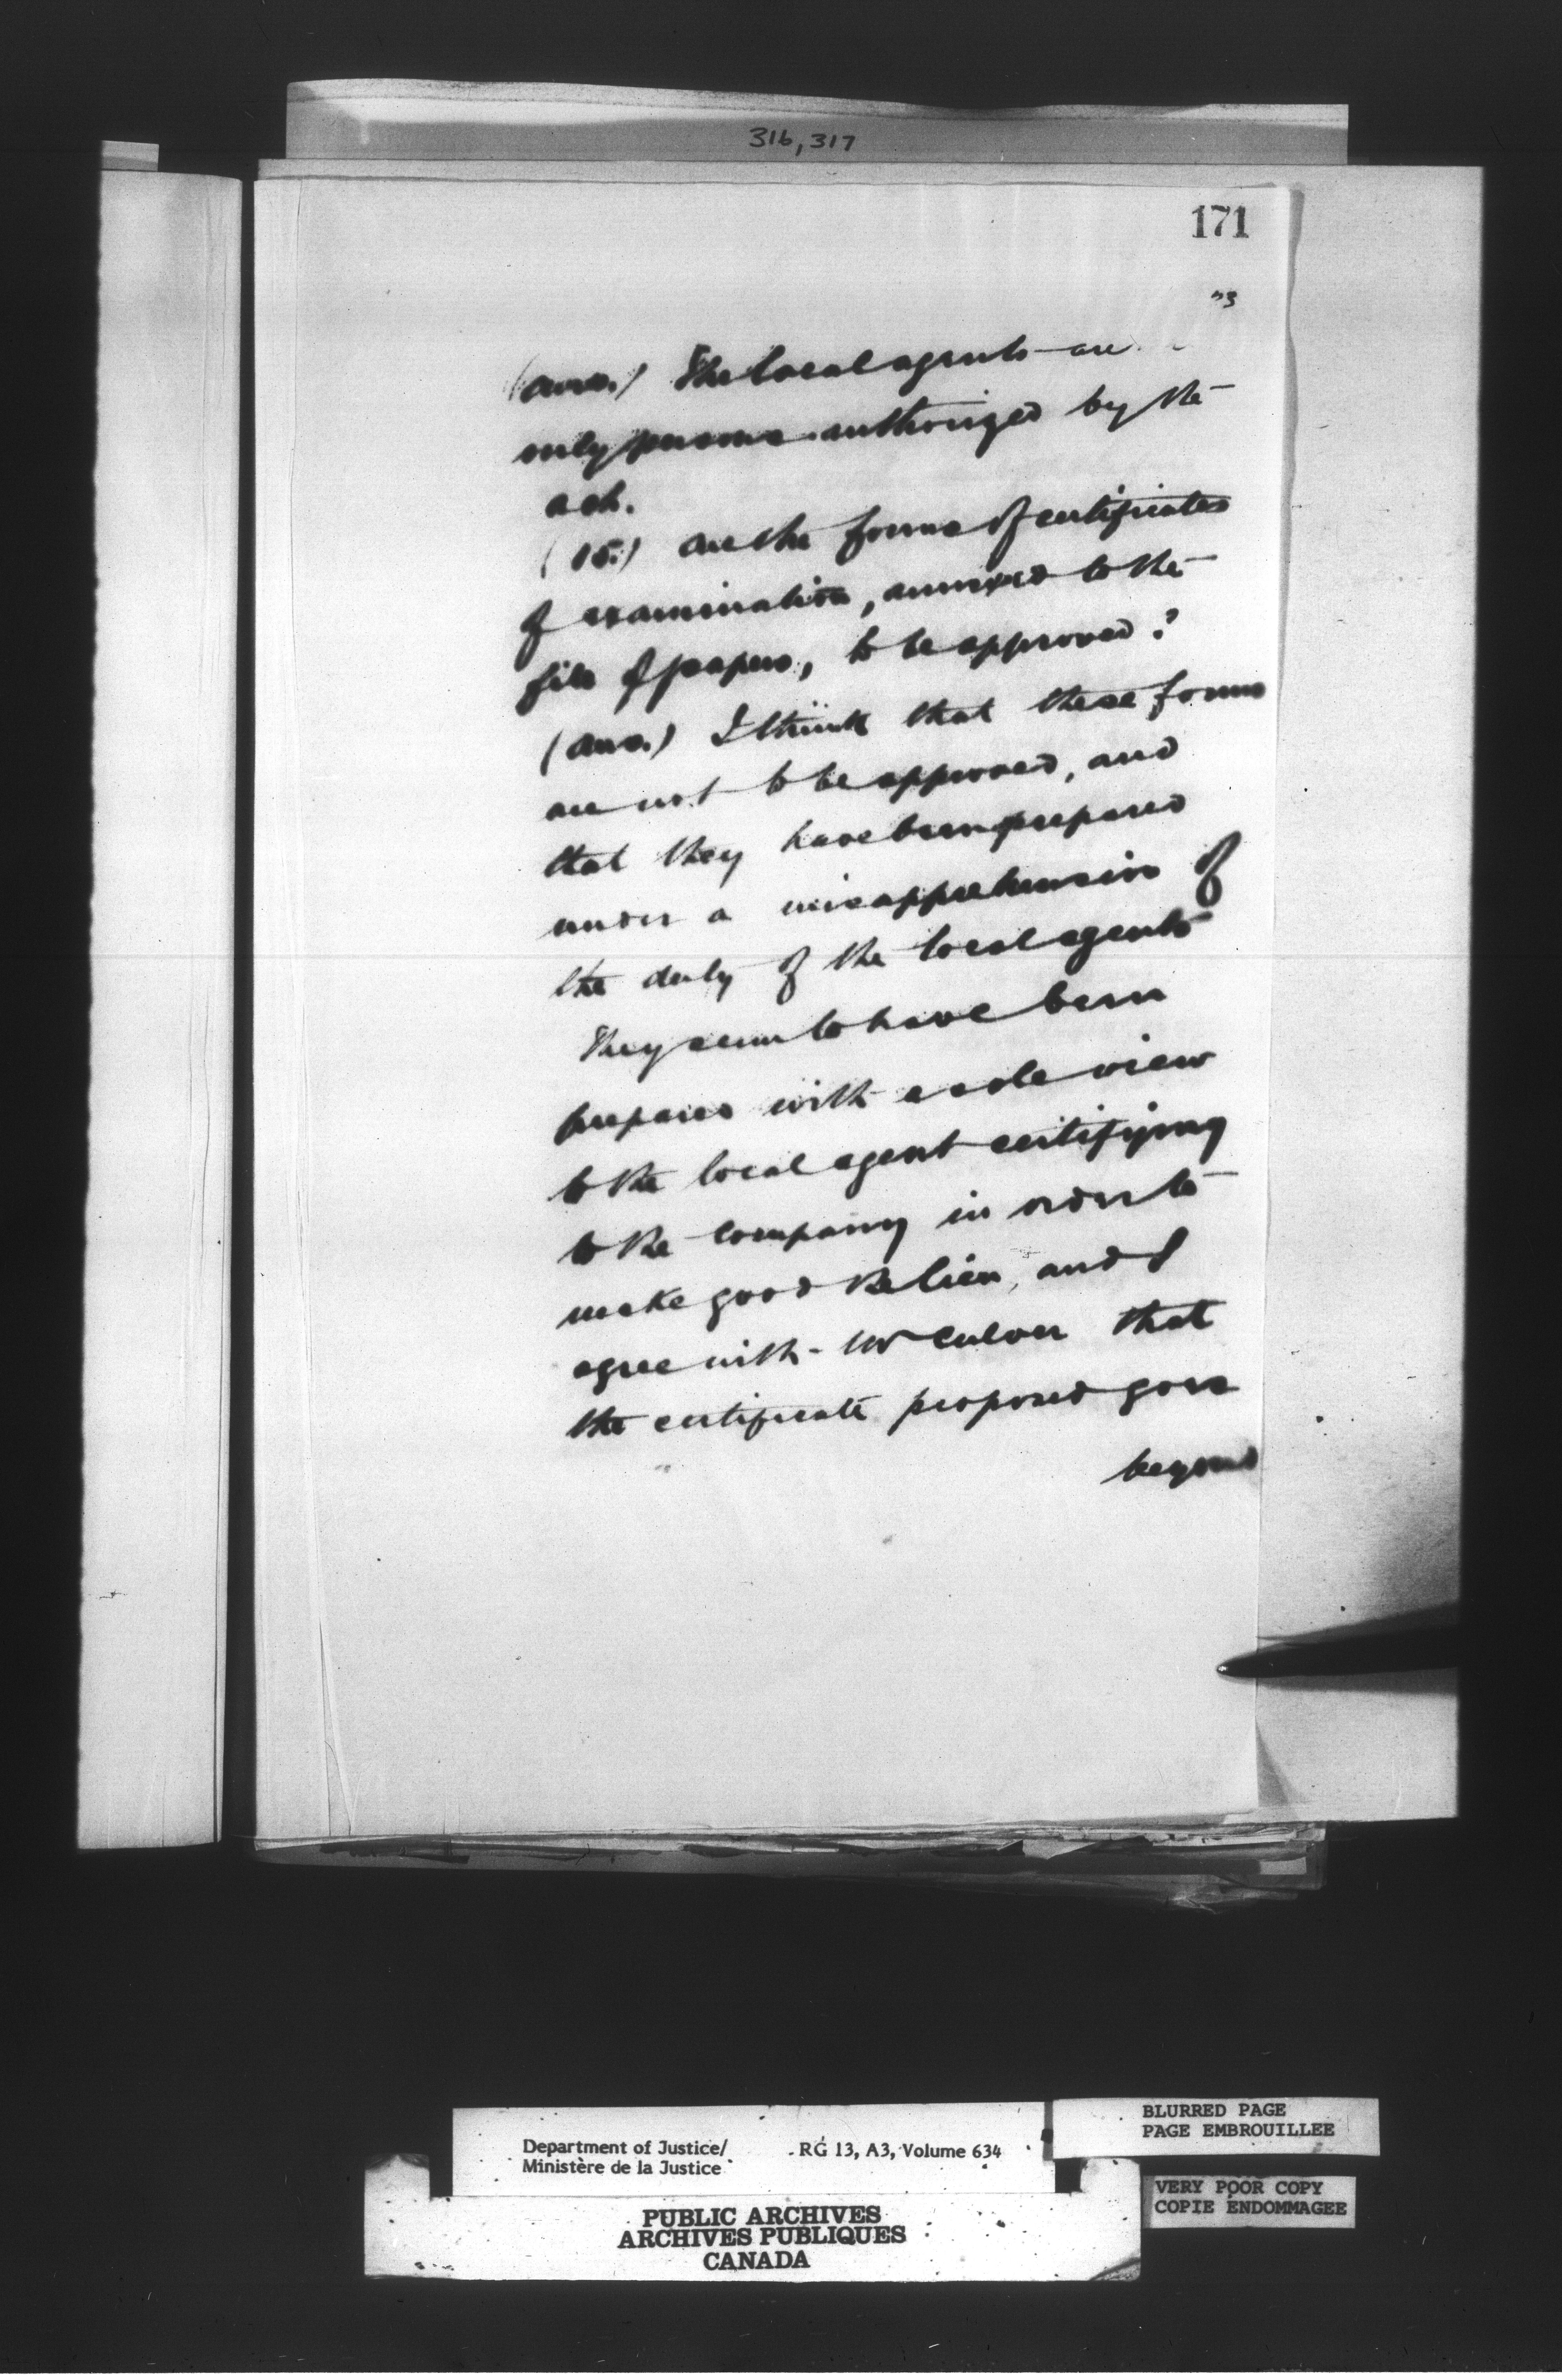 316, 317
171
"3
(Ans.) The local agents are
only persons authorized by the
act.
(15.) Are the forms of certificates
of examination, annexed to the
file of papers, to be approved?
(Ans.) I think that these forms
are not to be approved, and
that they have been prepared
under a misapprehension of
the duty of the local agents
They seem to have been
prepared with a sole view
to the local agent certifying
to the company in order to
make good the lien, and I
agree with Mr Culver that
the certificate proposed goes
beyond
Department of Justice/
Ministère de la Justice
RG 13, A3, Volume 634
BLURRED PAGE
PAGE EMBROUILLEE
VERY POOR COPY
COPIE ENDOMMAGEE
PUBLIC ARCHIVES
ARCHIVES PUBLIQUES
CANADA